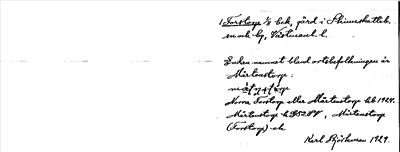 1 Forstorp ⅛ bek, gård i Skinnskatteb.
sn och bg, Västmanl. l.
Enda namnet bland ortsbefolkningen är
Mårtenstorp:
Norra Forstorp eller Mårtenstorp hb 1924.
Mårtenstorp GS28V, Mårtenstorp
(Forstorp) ek
Karl Björkman 1929.